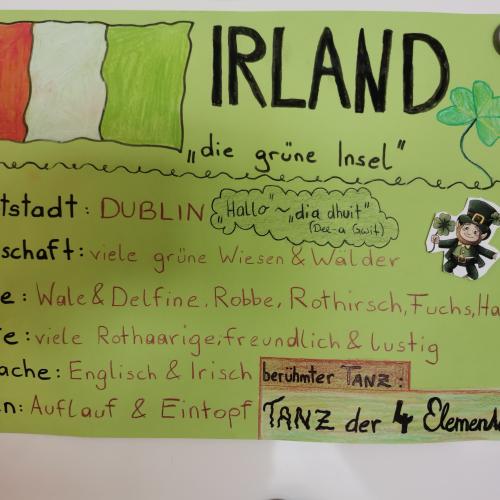 IRLAND
„die grüne Insel"
tstadt: DUBLIN
„Hallo" ~ „dia dhuit"
(Dee-a Gwit)
schaft: viele grüne Wiesen & Wälder
e: Wale & Delfine, Robbe, Rothirsch, Fuchs, Ha
e: viele Rothaarige, freundlich & lustig
ache: Englisch & Irisch
berühmter TANZ:
n: Auflauf & Eintopf
TANZ der 4 Element